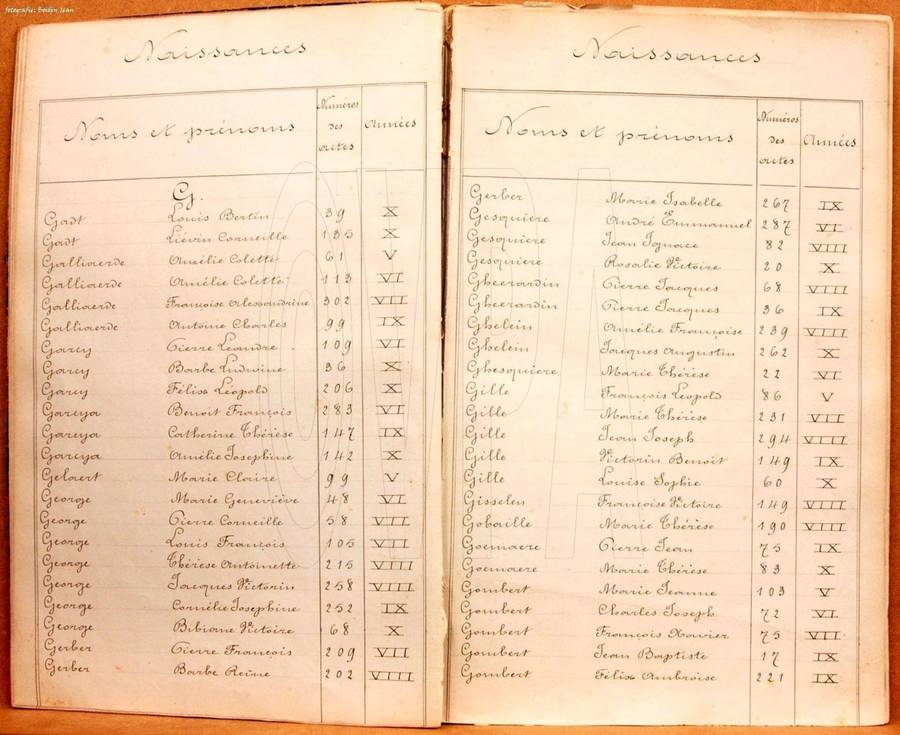 fotografie: Boidin Jean
Naissances
Noms et prénoms Numéros des actes Années
G.
Gadt Louis Bertin 39 X
Gadt Liévin Corneille 135 X
Galliaerde Amélie Colette 61 V
Galliaerde Amélie Colette 113 VI
Galliaerde Françoise Alessandrine 302 VII
Galliaerde Antoine Charles 99 IX
Garcy Pierre Léandre 109 VI
Garcy Barbe Ludwine 36 X
Garcy Félix Léopold 206 X
Garcya Benoit François 283 VI
Garcya Catherine Thérèse 147 IX
Garcya Amélie Josephine 142 X
Gelaert Marie Claire 99 V
George Marie Geneviève 48 VI
George Pierre Corneille 58 VII
George Louis François 105 VII
George Thérèse Antoinette 215 VIII
George Jacques Victorin 258 VIII
George Cornélie Josephine 252 IX
George Bibiane Victoire 68 X
Gerber Pierre François 209 VII
Gerber Barbe Reine 202 VIII
Naissances
Noms et prénoms Numéros des actes Années
Gerber Marie Isabelle 267 IX
Gesquiere André Emmanuel 287 VI
Gesquiere Jean Ignace 82 VIII
Gesquiere Rosalie Victoire 20 X
Gheerardin Pierre Jacques 68 VIII
Gheerardin Pierre Jacques 36 IX
Ghelein Amélie Françoise 239 VIII
Ghelein Jacques Augustin 262 X
Ghesquiere Marie Thérèse 22 VI
Gille François Léopold 86 V
Gille Marie Thérèse 231 VII
Gille Jean Joseph 294 VIII
Gille Victorin Benoit 149 IX
Gille Louise Sophie 60 X
Gisselen Françoise Victoire 149 VIII
Gobaille Marie Thérèse 190 VIII
Goemaere Pierre Jean 75 IX
Goemaere Marie Thérèse 83 X
Gombert Marie Jeanne 103 V
Gombert Charles Joseph 72 VI
Gombert François Xavier 75 VII
Gombert Jean Baptiste 17 IX
Gombert Félix Ambroise 221 IX